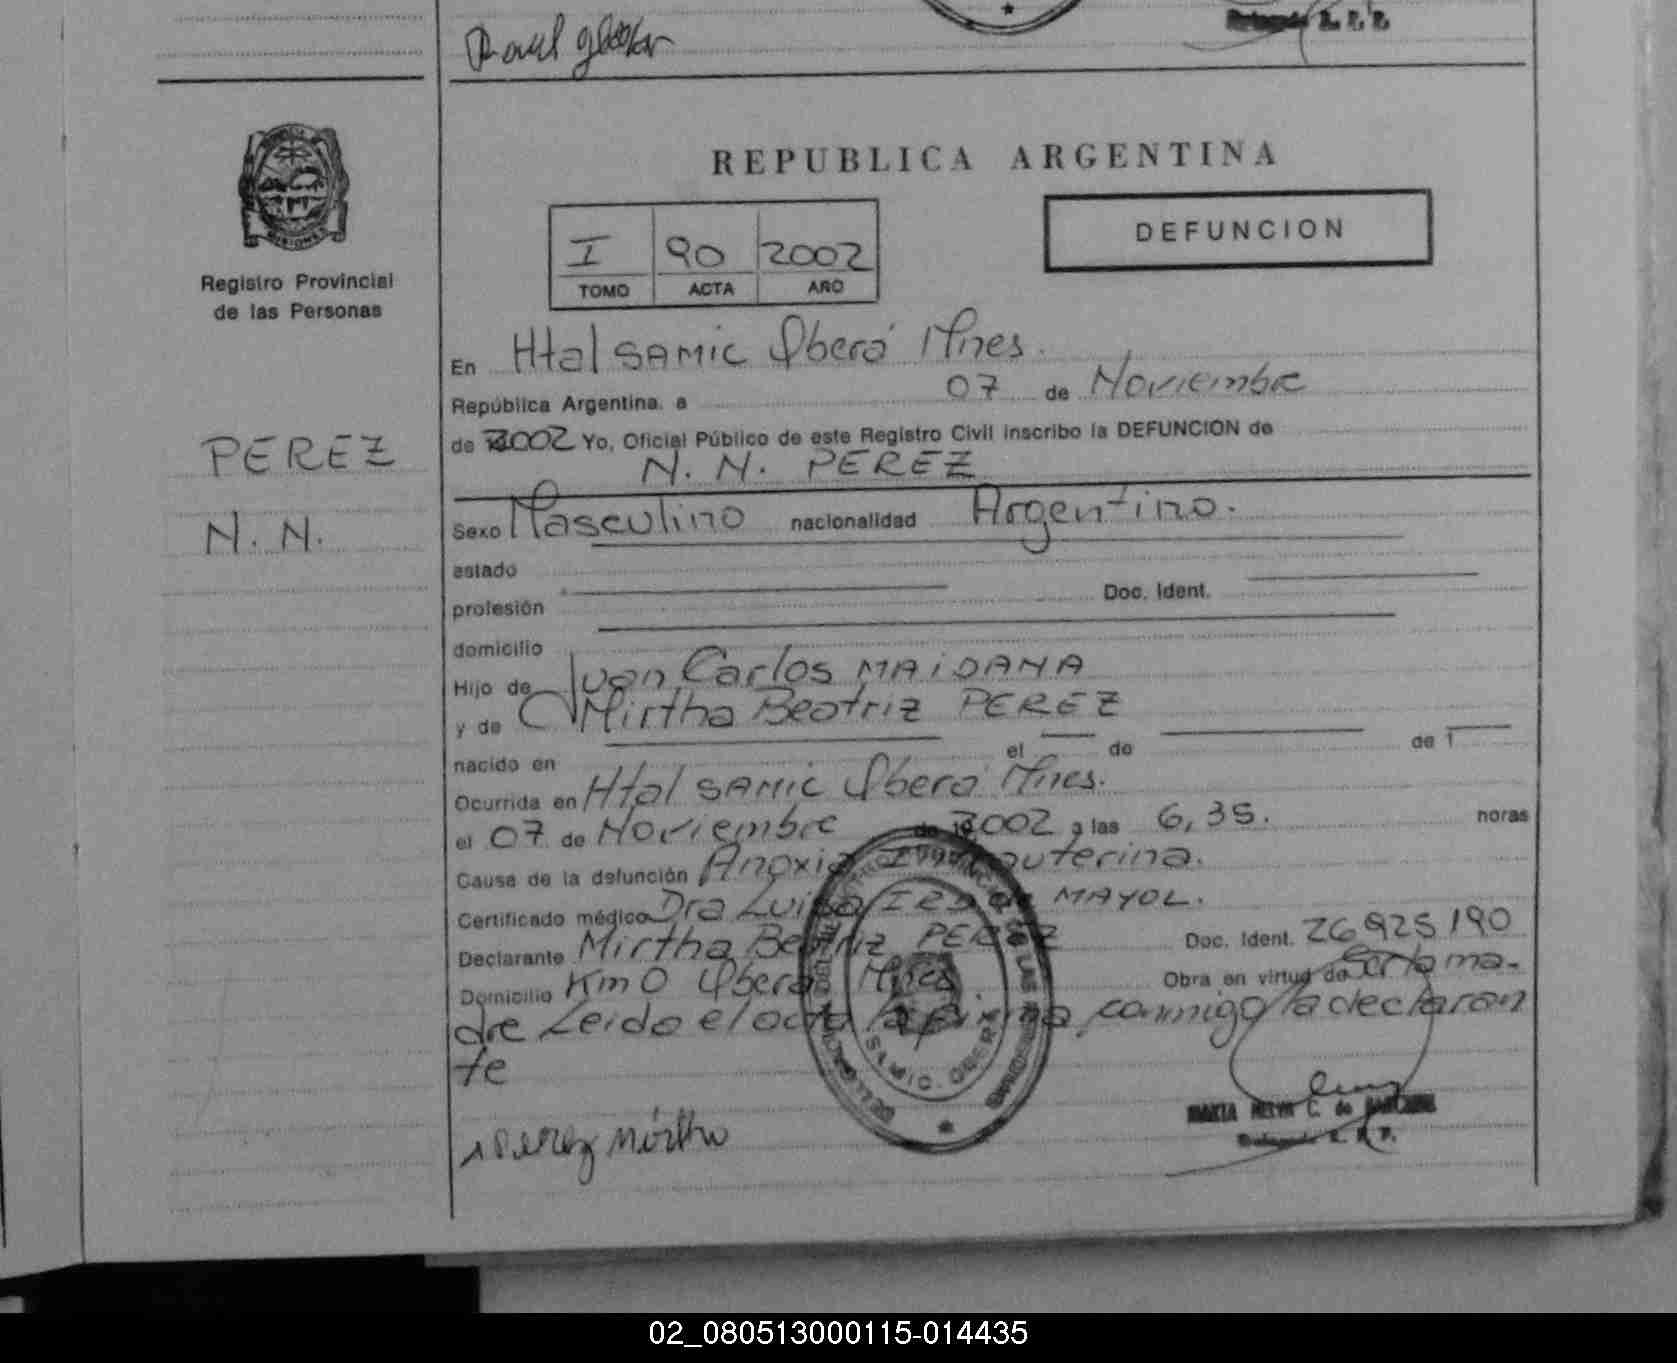 Raul
REPUBLICA ARGENTINA
DEFUNCION
I 90 2002
TOMO ACTA AÑO
Registro Provincial
de las Personas
PEREZ
N. N.
En Htal SAMIC Oberá Mnes.
República Argentina, a 07 de Noviembre
de 2002 Yo, Oficial Público de este Registro Civil inscribo la DEFUNCION de
N. N. PEREZ
Sexo Masculino nacionalidad Argentino.
estado
profesión Doc. Ident.
domicilio
Hijo de Juan Carlos MAIDANA
y de Mirtha Beatriz PEREZ
nacido en el de de 1
Ocurrida en Htal SAMIC Oberá Mnes.
el 07 de Noviembre de 2002 a las 6,35. horas
Causa de la defunción Anoxia Intrauterina.
Certificado médico Dra Luisa de MAYOL.
Declarante Mirtha Beatriz PEREZ Doc. Ident. 26925190
Domicilio Km 0 Oberá Mnes. Obra en virtud de Ser la ma-
dre Leido el acta la firma conmigo la declaran
te
SAMIC. OBERA
Perez Mirtha
MARTA C. de
02_080513000115-014435